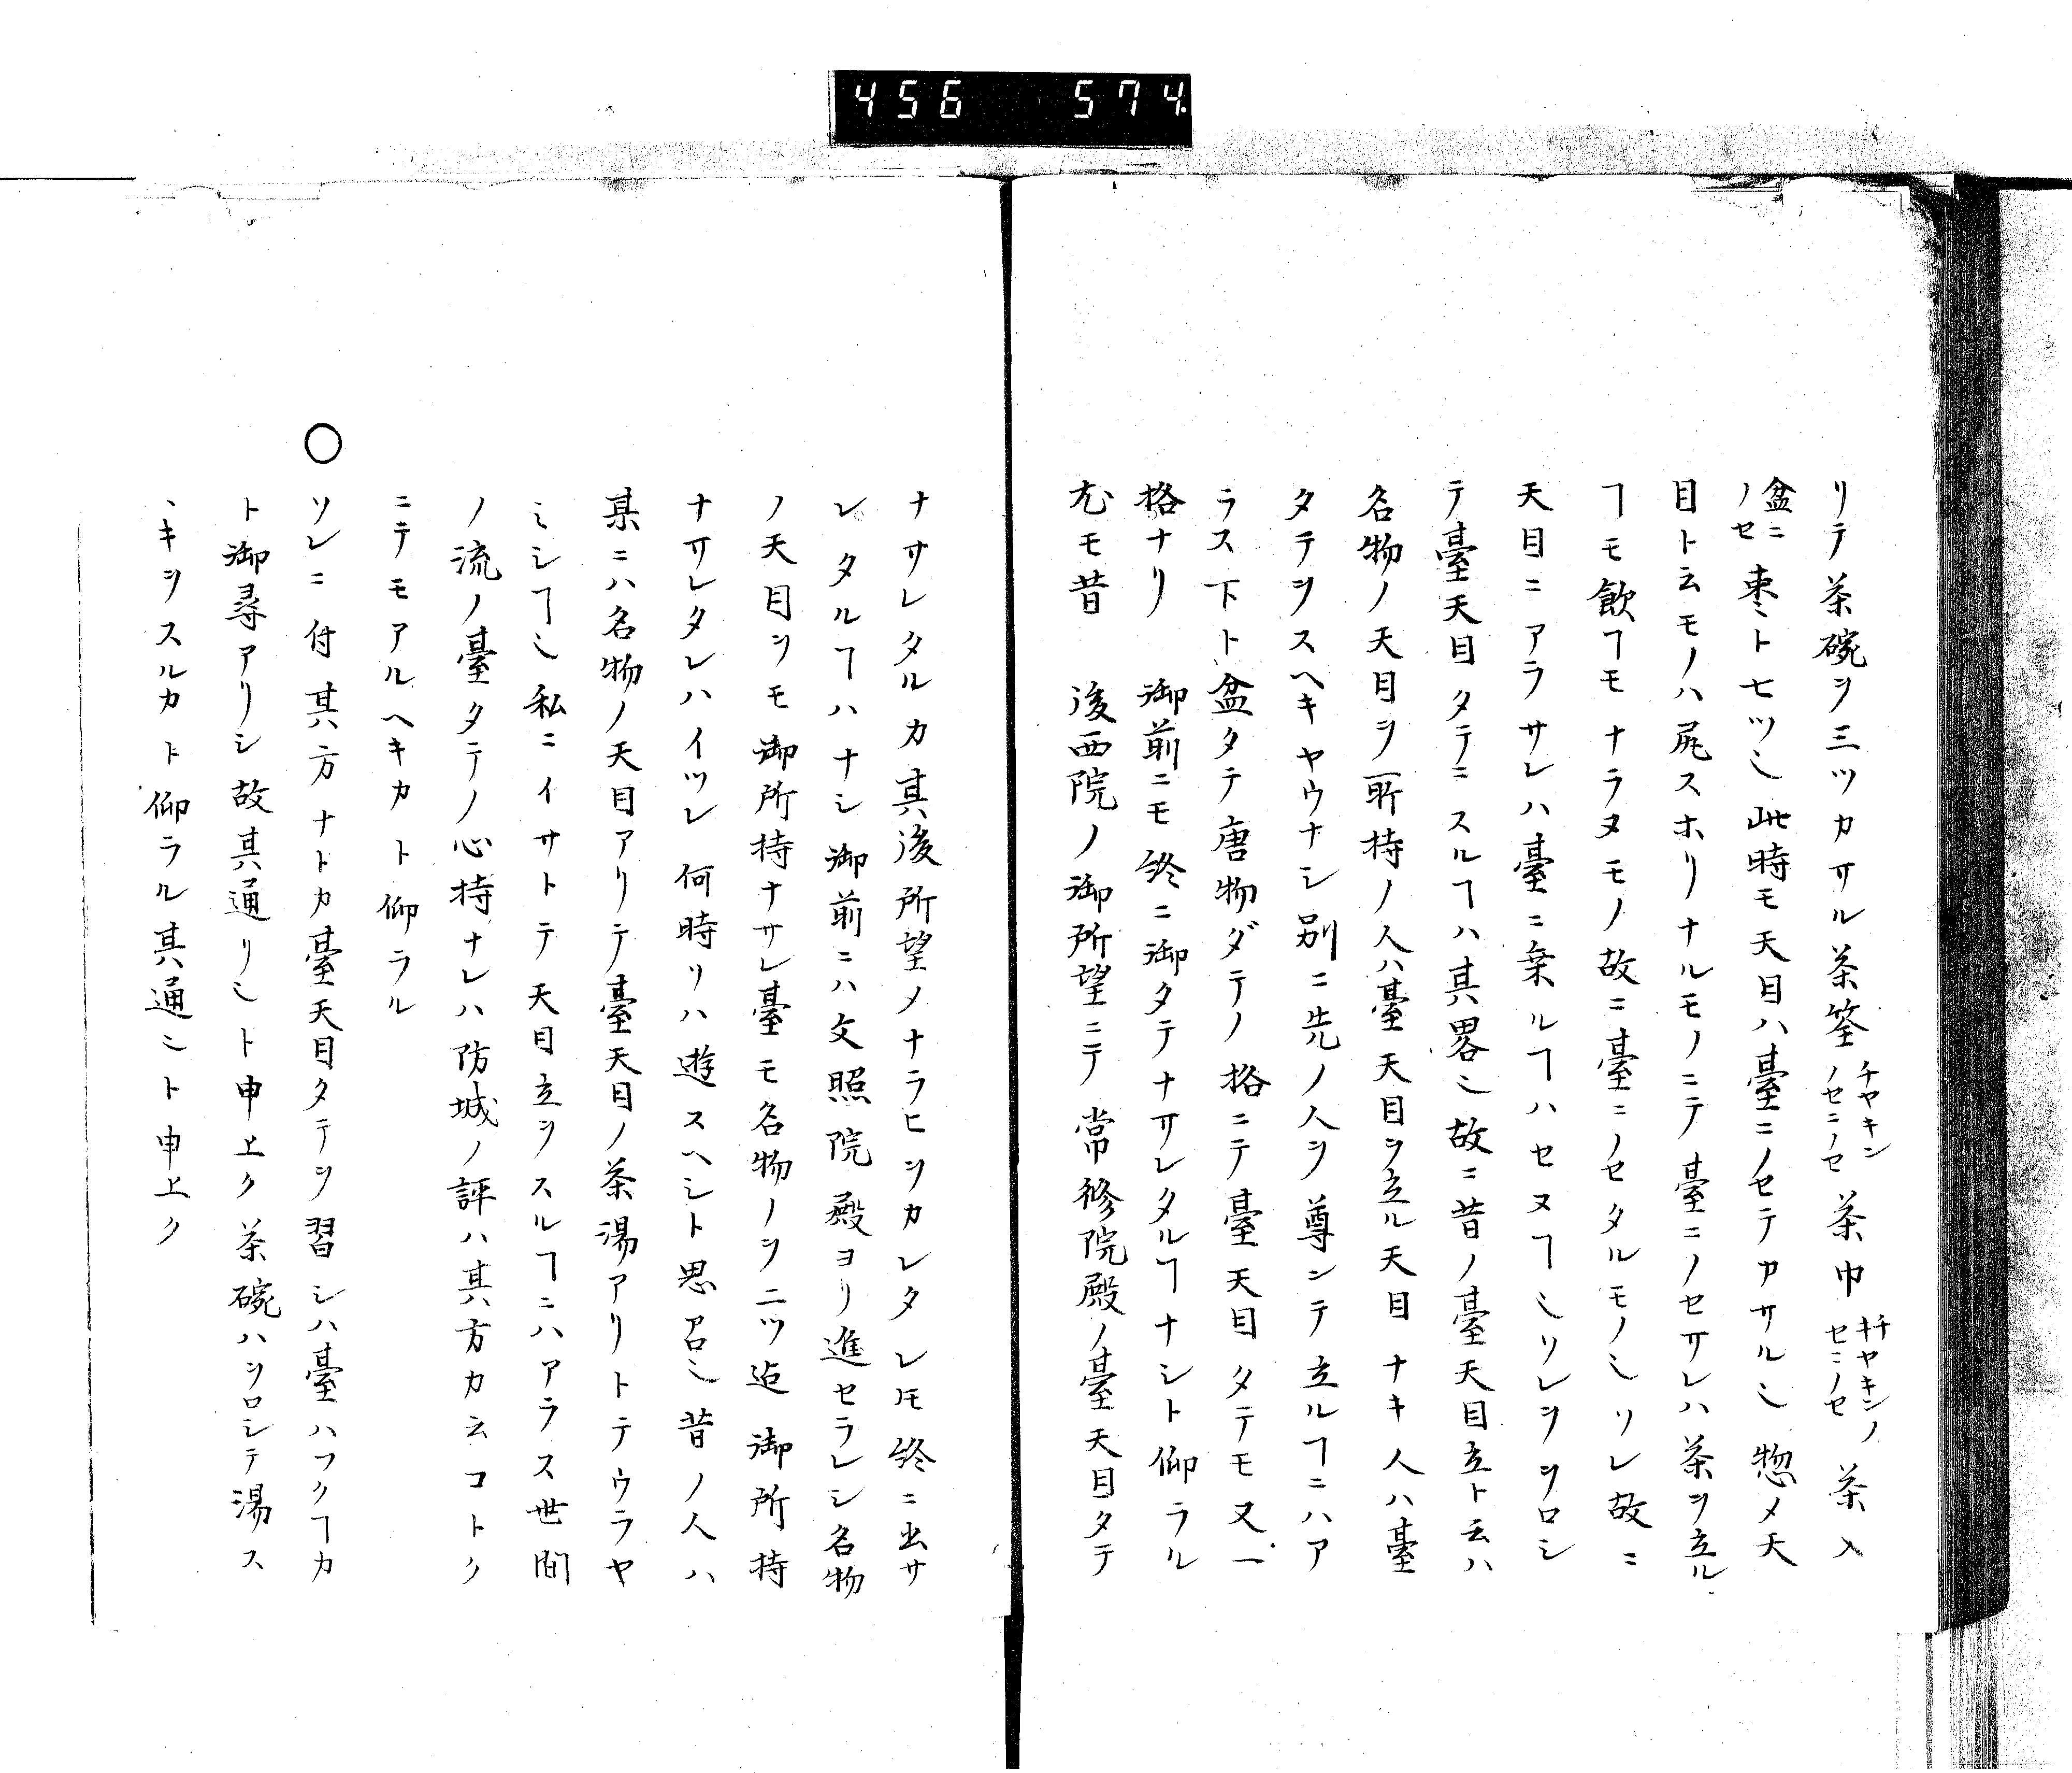 456 574
リテ茶碗ヲ三ツカサル茶筌チヤキンノセニノセ茶巾チヤキンノキセニノセ茶入
盆ニノセ棗ト七ツ也此時モ天目ハ臺ニノセテカサル也惣メ天
目ト云モノハ尻スホリナルモノニテ臺ニノセサレハ茶ヲ立ル
ヿモ飲ヿモナラヌモノ故ニ臺ニノセタルモノ也ソレ故ニ
天目ニアラサレハ臺ニ乗ルヿハセヌヿ也ソレヲヲロシ
テ臺天目タテニスルヿハ其畧也故ニ昔ノ臺天目立ト云ハ
名物ノ天目ヲ所持ノ人ハ臺天目ヲ立ル天目ナキ人ハ臺
タテヲスヘキヤウナシ別ニ先ノ人ヲ尊ンテ立ルヿニハア
ラス下ト盆タテ唐物ダテノ格ニテ臺天目タテモ又一
格ナリ 御前ニモ終ニ御タテナサレタルヿナシト仰ラル
尤モ昔 後西院ノ御所望ニテ常修院殿ノ臺天目タテ
ナサレタルカ其後所望メナラヒヲカレタレ𪜈終ニ出サ
レタルヿハナシ御前ニハ文照院殿ヨリ進セラレシ名物
ノ天目ヲモ御所持ナサレ臺モ名物ノヲ二ツ迠御所持
ナサレタレハイツレ何時リハ遊スヘシト思召也昔ノ人ハ
某ニハ名物ノ天目アリテ臺天目ノ茶湯アリトテウラヤ
ミシヿ也私ニイサトテ天目立ヲスルヿニハアラス世間
ノ流ノ臺タテノ心持ナレハ防城ノ評ハ其方カ云コトク
ニテモアルヘキカト仰ラル
○ソレニ付其方ナトカ臺天目タテヲ習シハ臺ハフクヿカ
ト御尋アリシ故其通リ也ト申上ク茶碗ハヲロシテ湯ス
ヽキヲスルカト仰ラル其通也ト申上ク